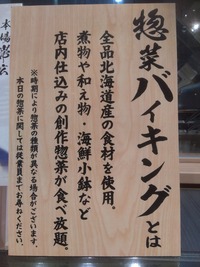 惣菜バイキングとは
全品北海道産の食材を使用。
煮物や和え物・海鮮小鉢など
店内仕込みの創作惣菜が食べ放題。
※時期により惣菜の種類が異なる場合がございます。
本日の惣菜に関しては従業員までお尋ねください。